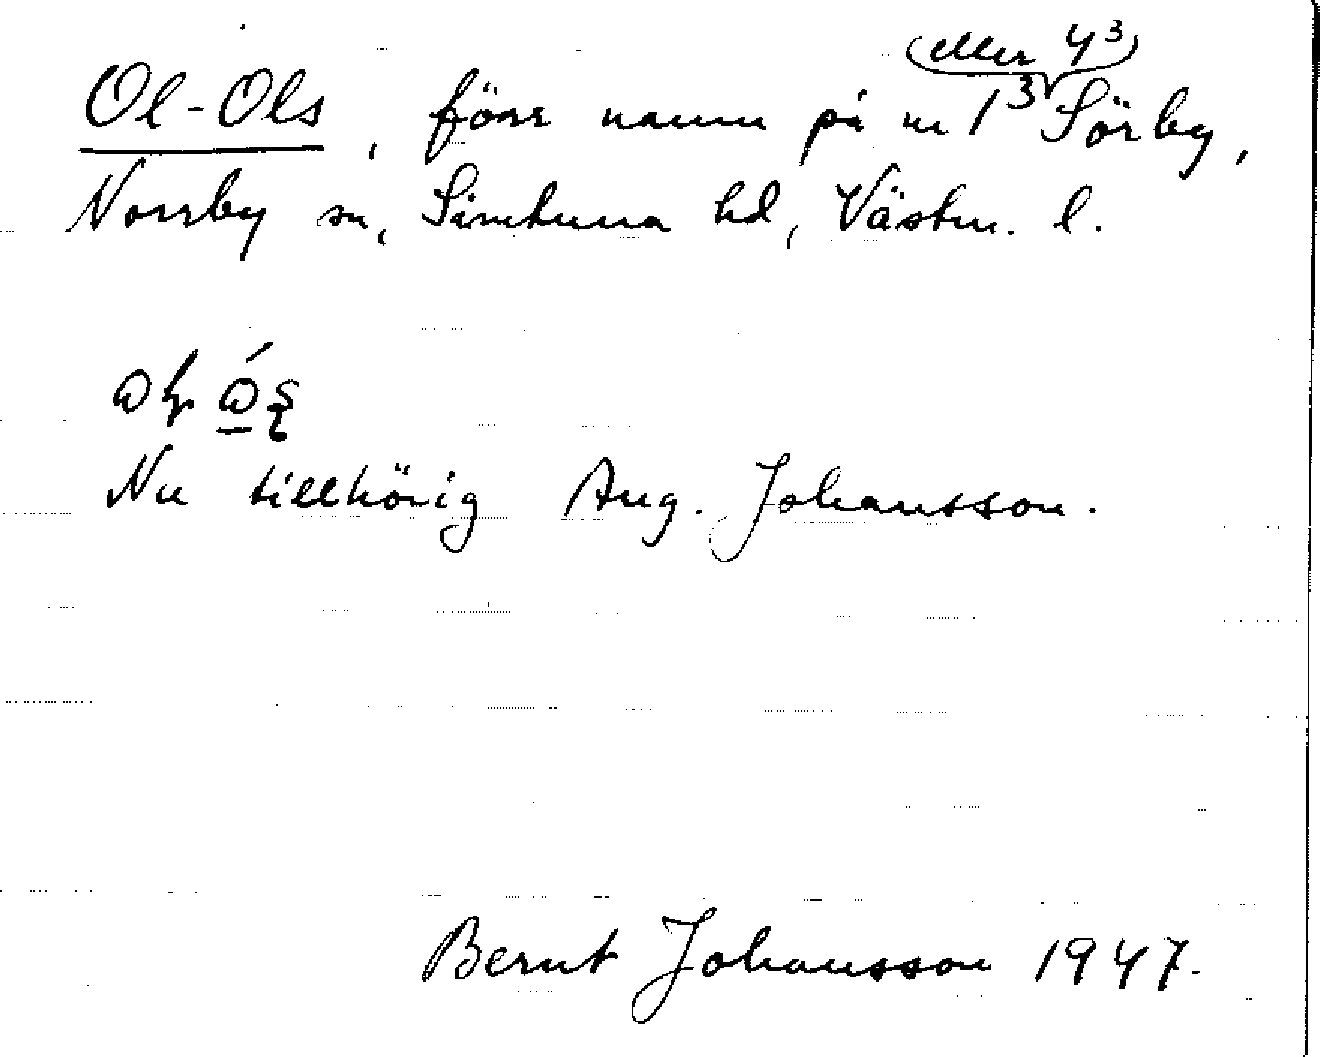 Ol-Ols, förr namn på nr 1³ (eller 4³) Sörby,
Norrby sn, Simtuna hd, Västm. l.
Nu tillhörig Aug. Johansson.
Bernt Johansson 1947.